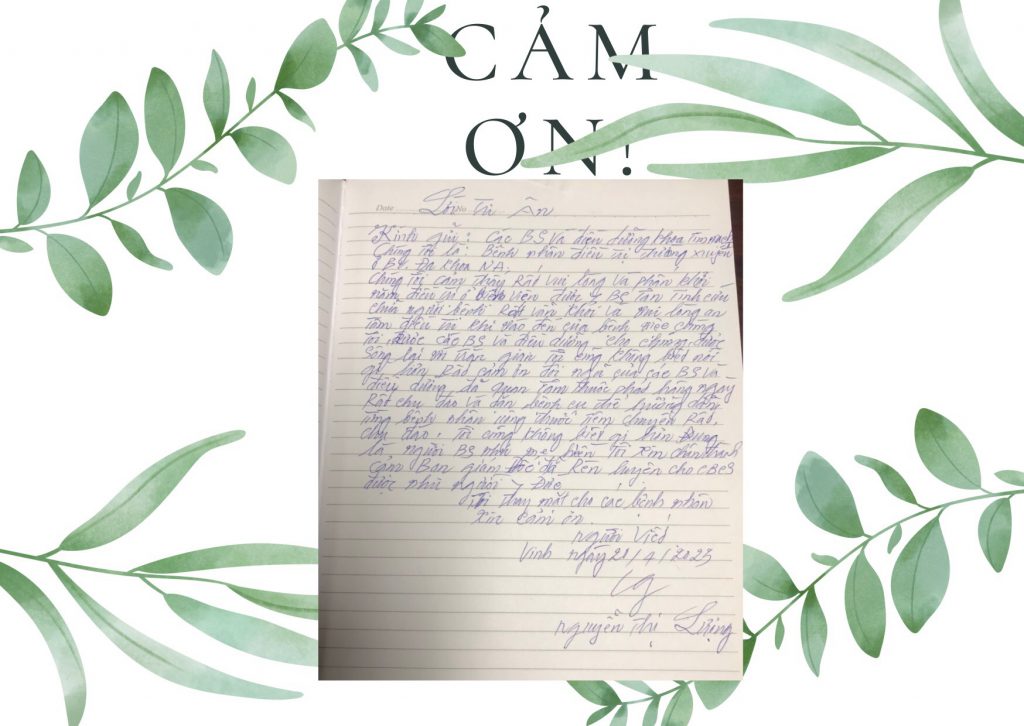 CẢM
ƠN!
Date No
Lời Tri Ân
Kính gửi: Các BS Và điều dưỡng khoa Tim mạch
Chúng tôi là: Bệnh nhân điều trị thường xuyên
ở BV Đa khoa NA.
Chúng tôi cảm thấy Rất Vui lòng Và phấn khởi
nằm điều trị ở bệnh Viện được BS tận tình cứu
chữa người bệnh Rất phấn khởi Và an
tâm điều trị khi nào đến của bệnh chúng
tôi được các BS Và điều dưỡng cho chúng được
Sống lại tôi trân quản tôi cũng không biết nói
gì hơn Rất cảm ơn đội ngũ của các BS Và
điều dưỡng đã quan tâm thuốc phát hàng ngày
Rất chu đáo Và dặn bệnh cụ thể hướng dẫn
từng bệnh nhân uống thuốc tiêm chuyền Rất
chu đáo. Tôi cũng không biết gì hơn
là người BS như mẹ hiền Tôi Xin chân thành
cảm Ban giám đốc đã Rèn luyện cho CBCS
được như người Y Đức
Tôi thay mặt cho các bệnh nhân
Xin cảm ơn.
người Viết
Vinh ngày 21/4/2023
nguyễn Thị Lượng